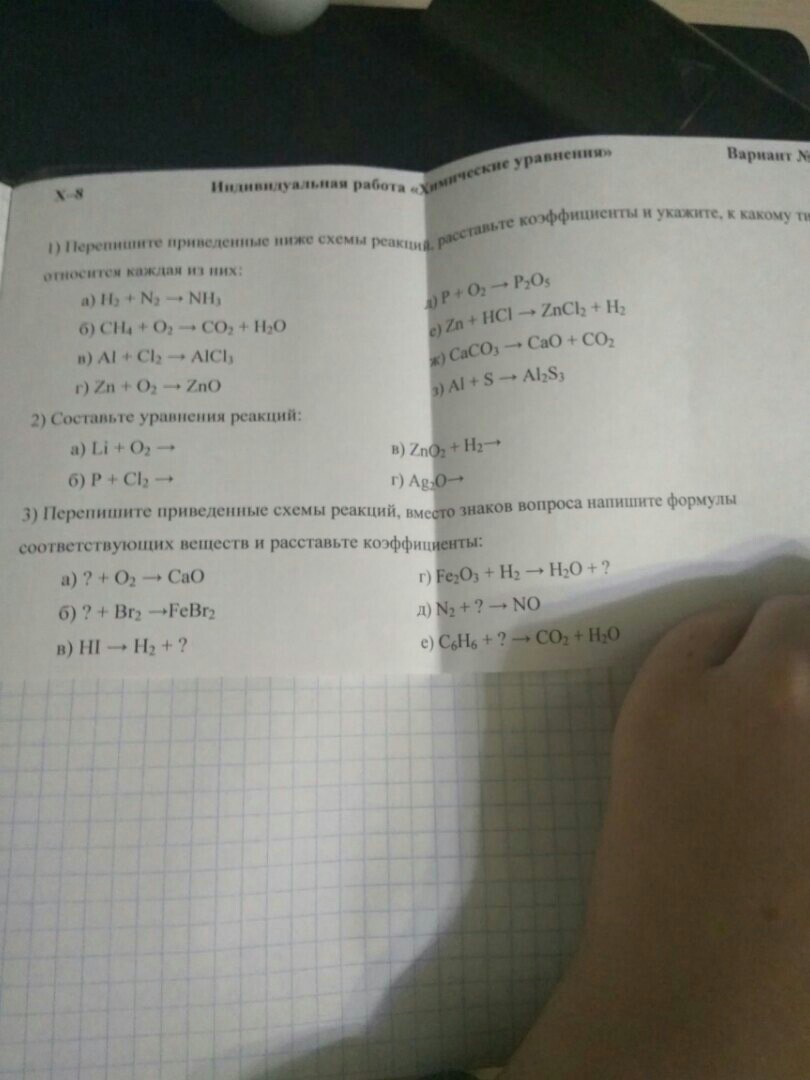 Х-8 Индивидуальная работа «Химические уравнения» Вариант №
1) Перепишите приведенные ниже схемы реакций, расставьте коэффициенты и укажите, к какому ти
относится каждая из них:
а) H₂ + N₂ → NH₃ д) P + O₂ → P₂O₅
б) CH₄ + O₂ → CO₂ + H₂O е) Zn + HCl → ZnCl₂ + H₂
в) Al + Cl₂ → AlCl₃ ж) CaCO₃ → CaO + CO₂
г) Zn + O₂ → ZnO з) Al + S → Al₂S₃
2) Составьте уравнения реакций:
а) Li + O₂ → в) ZnO₂ + H₂→
б) P + Cl₂ → г) Ag₂O→
3) Перепишите приведенные схемы реакций, вместо знаков вопроса напишите формулы
соответствующих веществ и расставьте коэффициенты:
а) ? + O₂ → CaO г) Fe₂O₃ + H₂ → H₂O + ?
б) ? + Br₂ →FeBr₂ д) N₂ + ? → NO
в) HI → H₂ + ? е) C₆H₆ + ? → CO₂ + H₂O